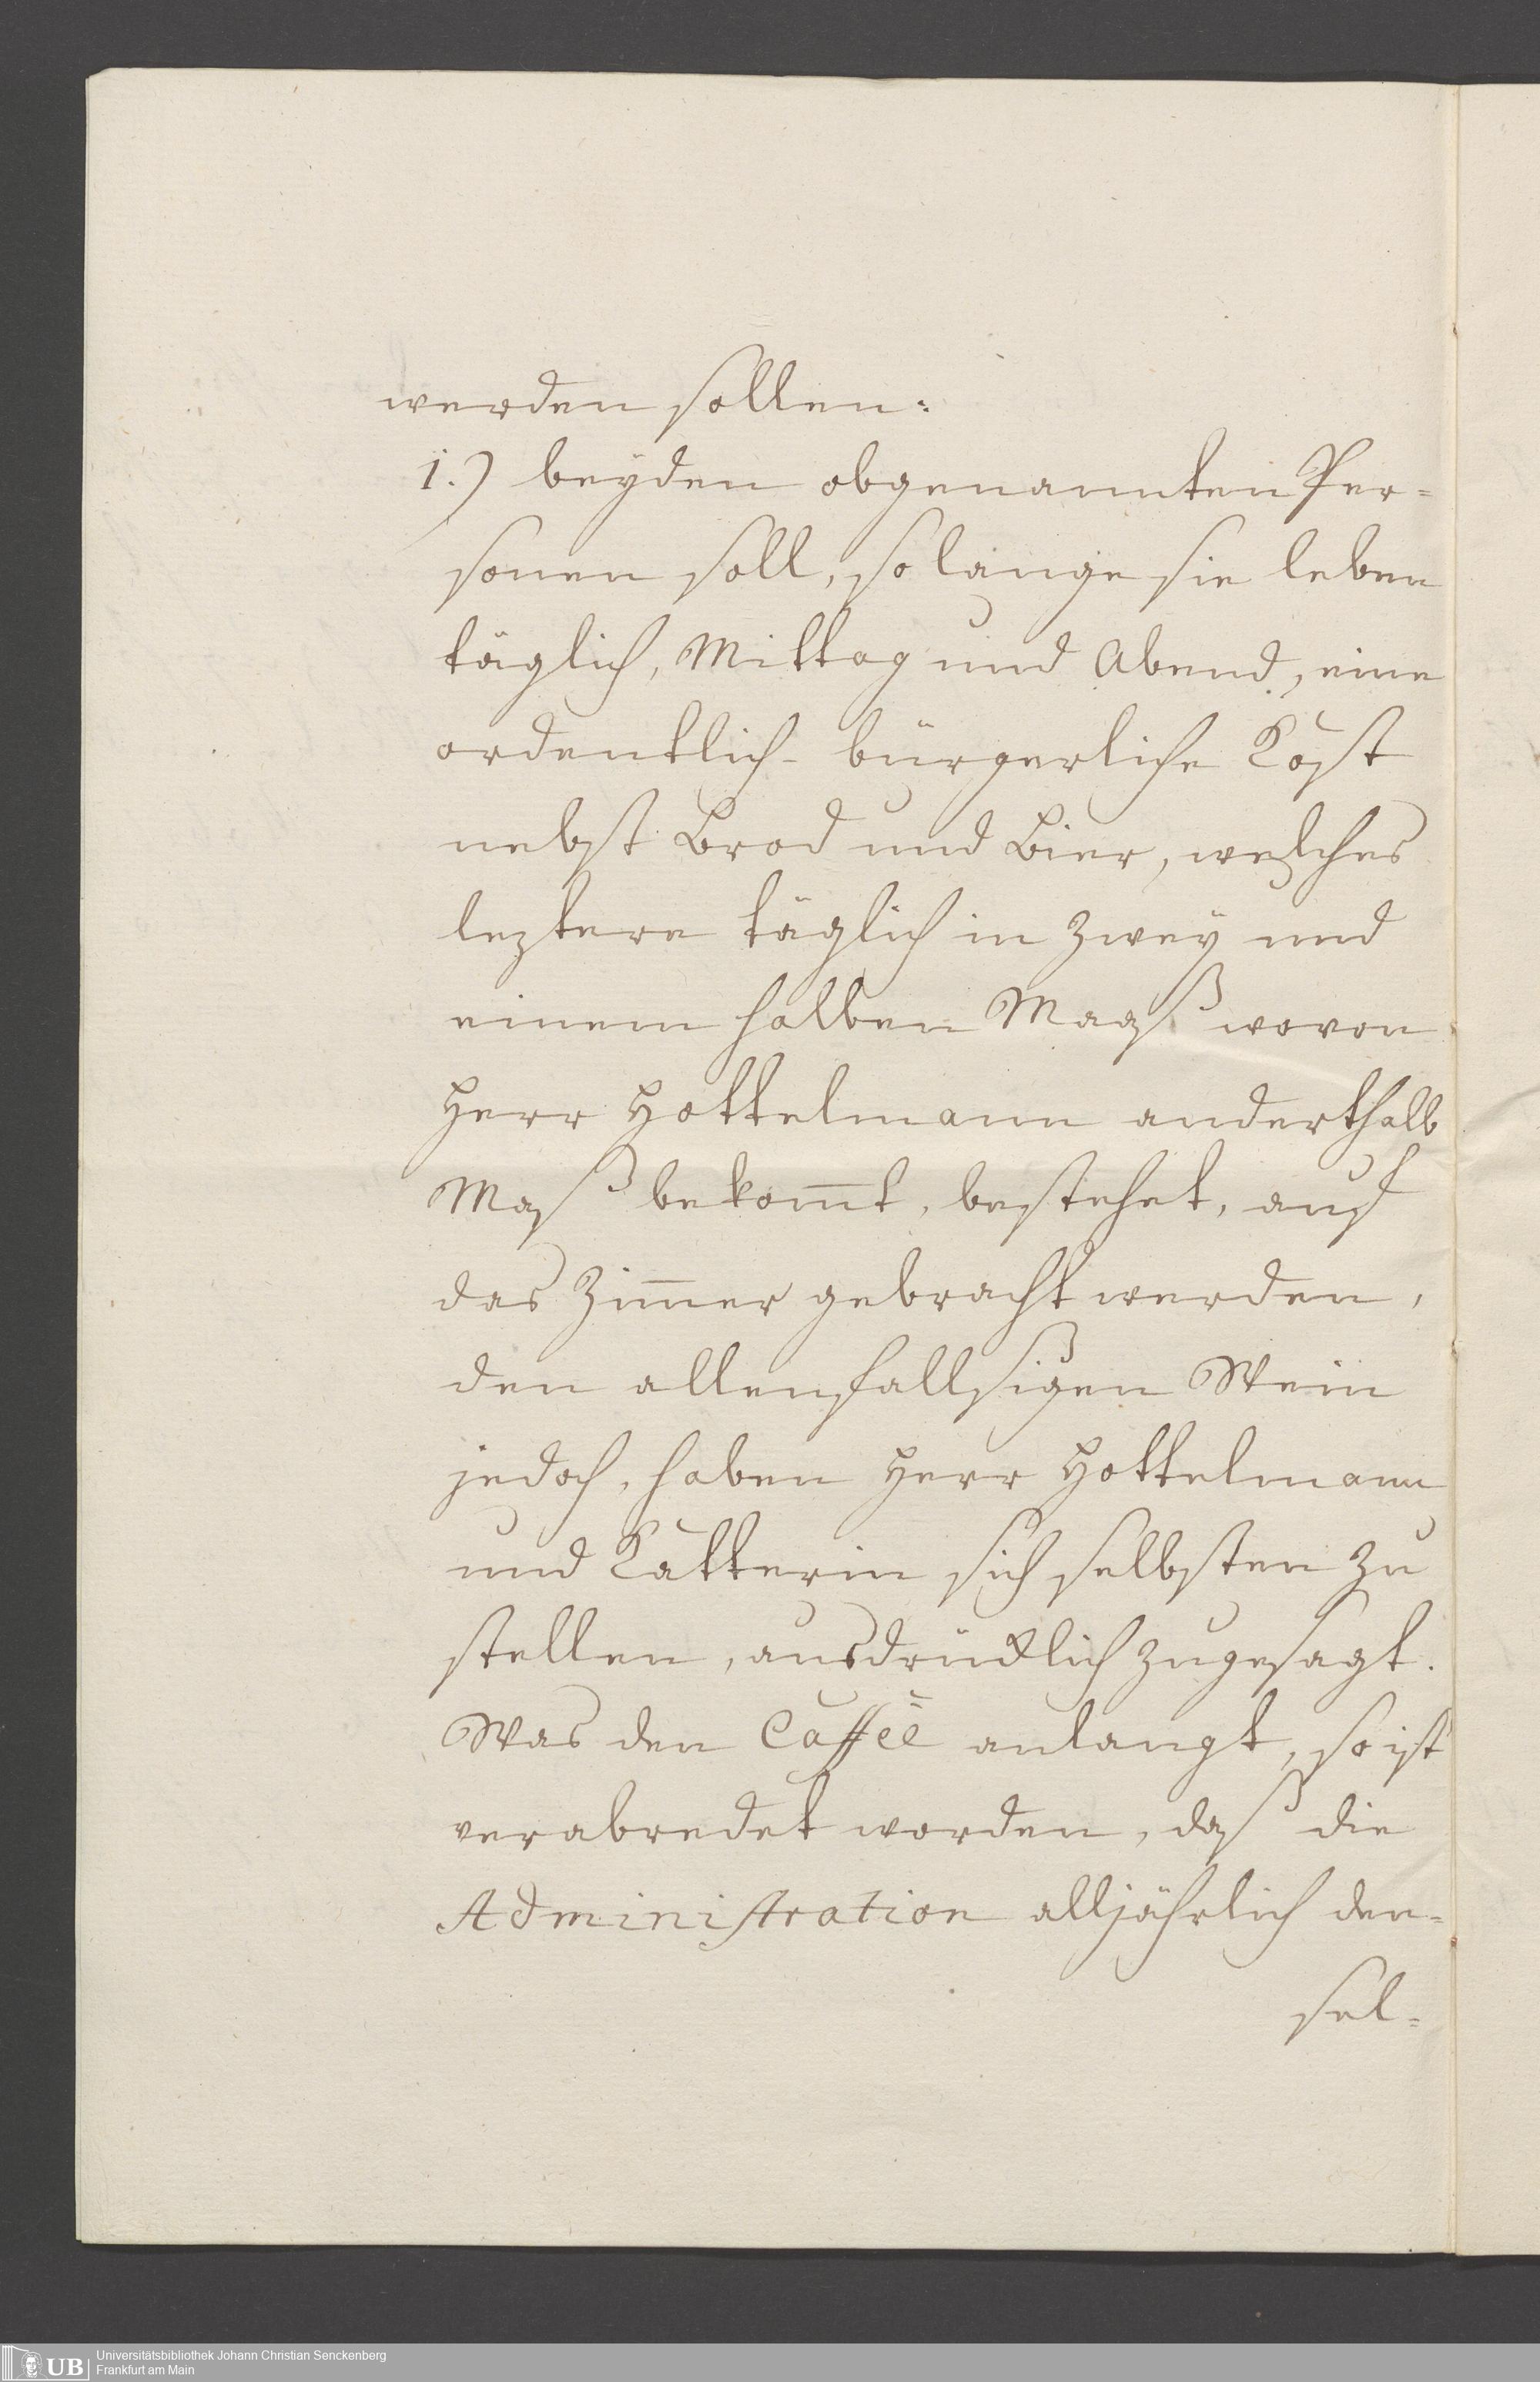 werden sollen:
1.) beyden obgenannten Per-
sonen soll, so lange sie leben
täglich, Mittag und Abend, eine
ordentlich-bürgerliche Kost
nebst Brod und Bier, welches
leztere täglich in zwey und
einem halben Maaß wovon
Herr Hottelmann anderthalb
Maß bekom̅t, bestehet, auf
das Zim̅er gebracht werden,
den allenfallsigen Wein
jedoch, haben Herr Hottelmann
und Katterin sich selbsten zu
stellen, ausdrücklich zugesagt.
Was den Caffée anlangt, so ist
verabredet worden, daß die
Administration alljährlich den-
sel-
UB Universitätsbibliothek Johann Christian Senckenberg
Frankfurt am Main